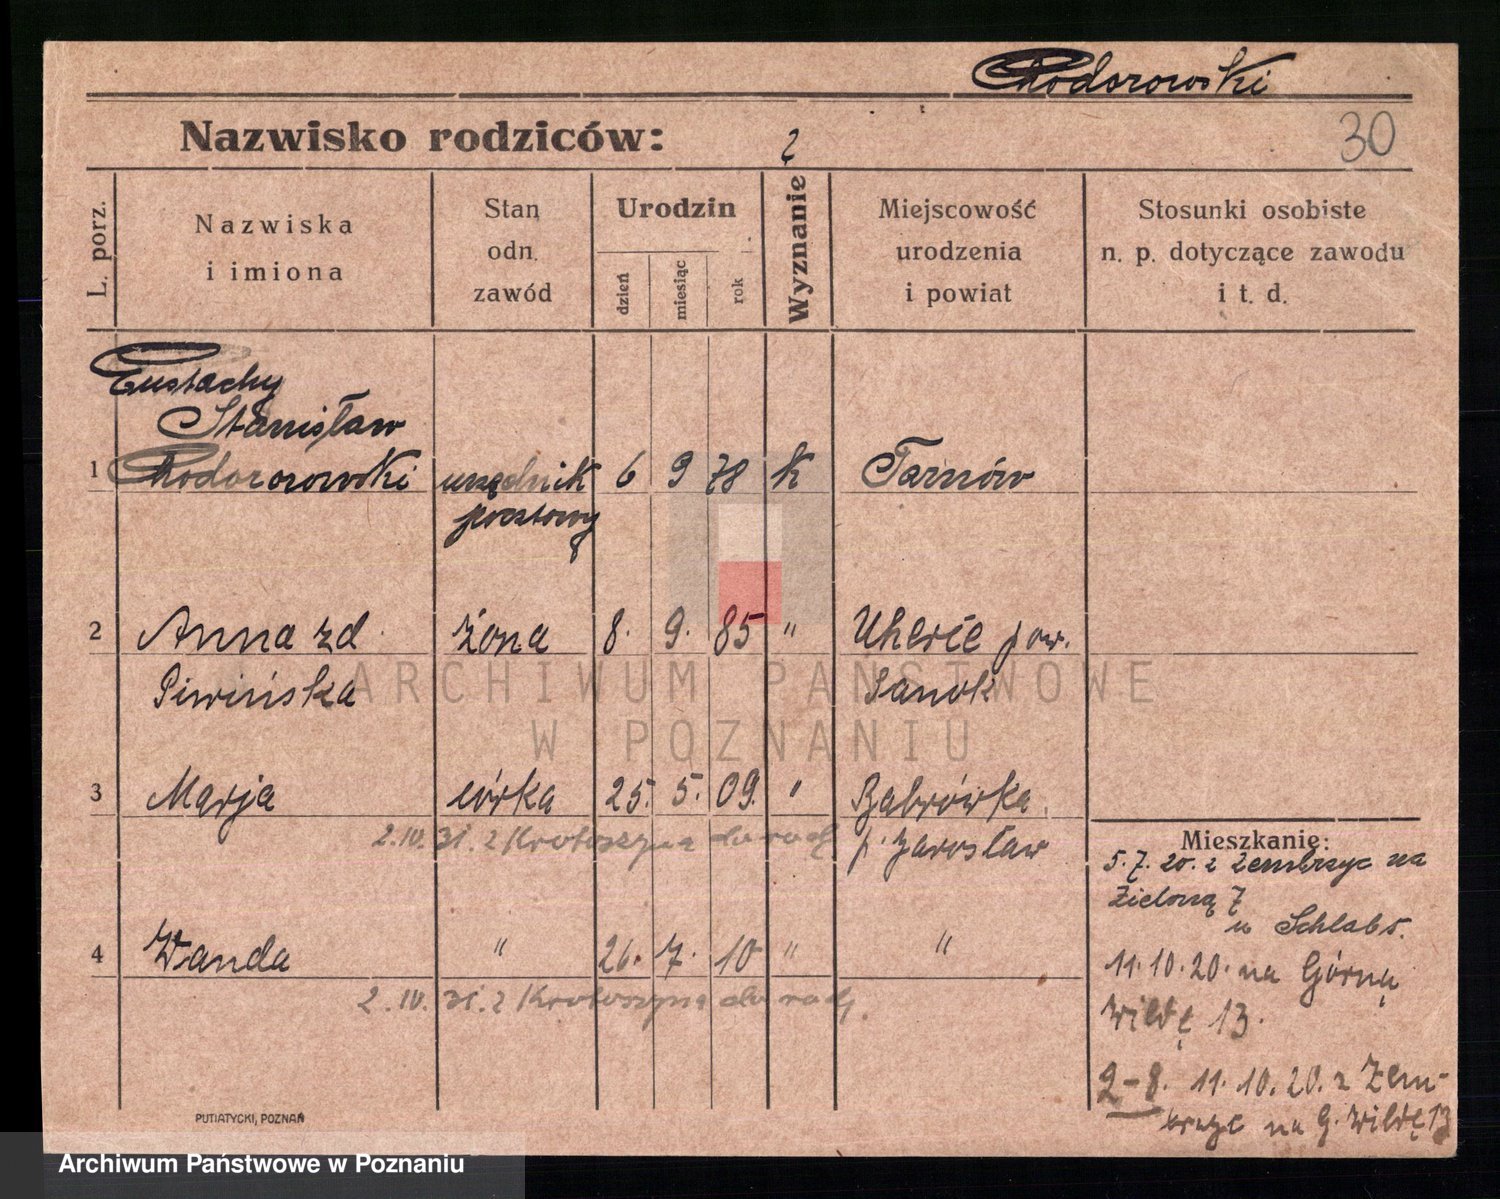 Chodorowski
30
Nazwisko rodziców: 2
L. porz.
Nazwiska
i imiona
Stan
odn.
zawód
Urodzin
dzień miesiąc rok
Wyznanie
Miejscowość
urodzenia
i powiat
Stosunki osobiste
n. p. dotyczące zawodu
i t. d.
Eustachy
Stanisław
1 urzędnik 6 9 78 k Tarnów
pocztowy
2 Anna zd żona 8. 9. 85 " Uherce pow.
Piwińska Sanok
3 Marja córka 25. 5. 09. "
2.IV.31. z Krotoszyna do rodz. p. Jarosław
4 Wanda " 26. 7. 10 " "
2.IV.31. z Krotoszyna do rodz.
Mieszkanie:
5.7.20. z Zembrzyc na
Zieloną 7
u Schlabs.
11.10.20. na Górną
Wildę 13.
2–8. 11.10.20. z Zem-
brzyc na G. Wildę 13
PUTIATYCKI, POZNAŃ
ARCHIWUM PAŃSTWOWE
W POZNANIU
Archiwum Państwowe w Poznaniu